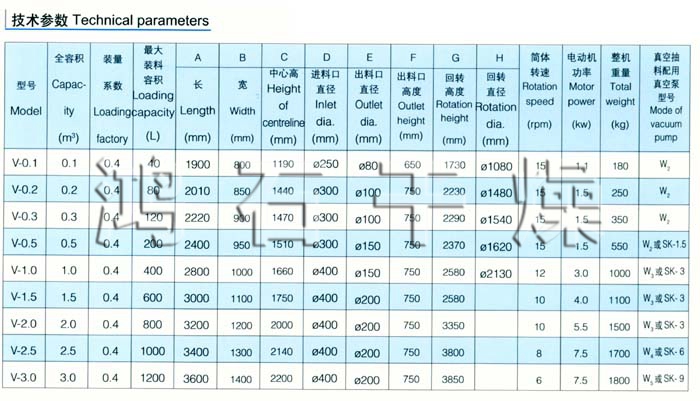 技术参数 Technical parameters
型号 Model | 全容积 Capac-ity (m³) | 装量系数 Loading factory | 最大装料容积 Loading capacity (L) | A 长 Length (mm) | B 宽 Width (mm) | C 中心高 Height of centreline (mm) | D 进料口直径 Inlet dia. (mm) | E 出料口直径 Outlet dia. (mm) | F 出料口高度 Outlet height (mm) | G 回转高度 Rotation height (mm) | H 回转直径 Rotation dia. (mm) | 筒体转速 Rotation speed (rpm) | 电动机功率 Motor power (kw) | 整机重量 Total weight (kg) | 真空抽料配用真空泵型号 Mode of vacuum pump
V-0.1 0.1 0.4 40 1900 800 1190 ø250 ø80 650 1730 ø1080 15 1.1 180 W₂
V-0.2 0.2 0.4 80 2010 850 1440 ø300 ø100 750 2230 ø1480 15 1.5 250 W₂
V-0.3 0.3 0.4 120 2220 900 1470 ø300 ø100 750 2290 ø1540 15 1.5 350 W₂
V-0.5 0.5 0.4 200 2400 950 1510 ø300 ø150 750 2370 ø1620 15 1.5 550 W₂或SK-1.5
V-1.0 1.0 0.4 400 2800 1000 1660 ø400 ø150 750 2580 ø2130 12 3.0 1000 W₃或SK-3
V-1.5 1.5 0.4 600 3000 1100 1750 ø400 ø200 750 2580 10 4.0 1100 W₃或SK-3
V-2.0 2.0 0.4 800 3200 1200 2000 ø400 ø200 750 3350 10 5.5 1500 W₃或SK-3
V-2.5 2.5 0.4 1000 3400 1300 2140 ø400 ø200 750 3800 8 7.5 1700 W₄或SK-6
V-3.0 3.0 0.4 1200 3600 1400 2200 ø400 ø200 750 3850 6 7.5 1800 W₅或SK-9
鸿石干燥